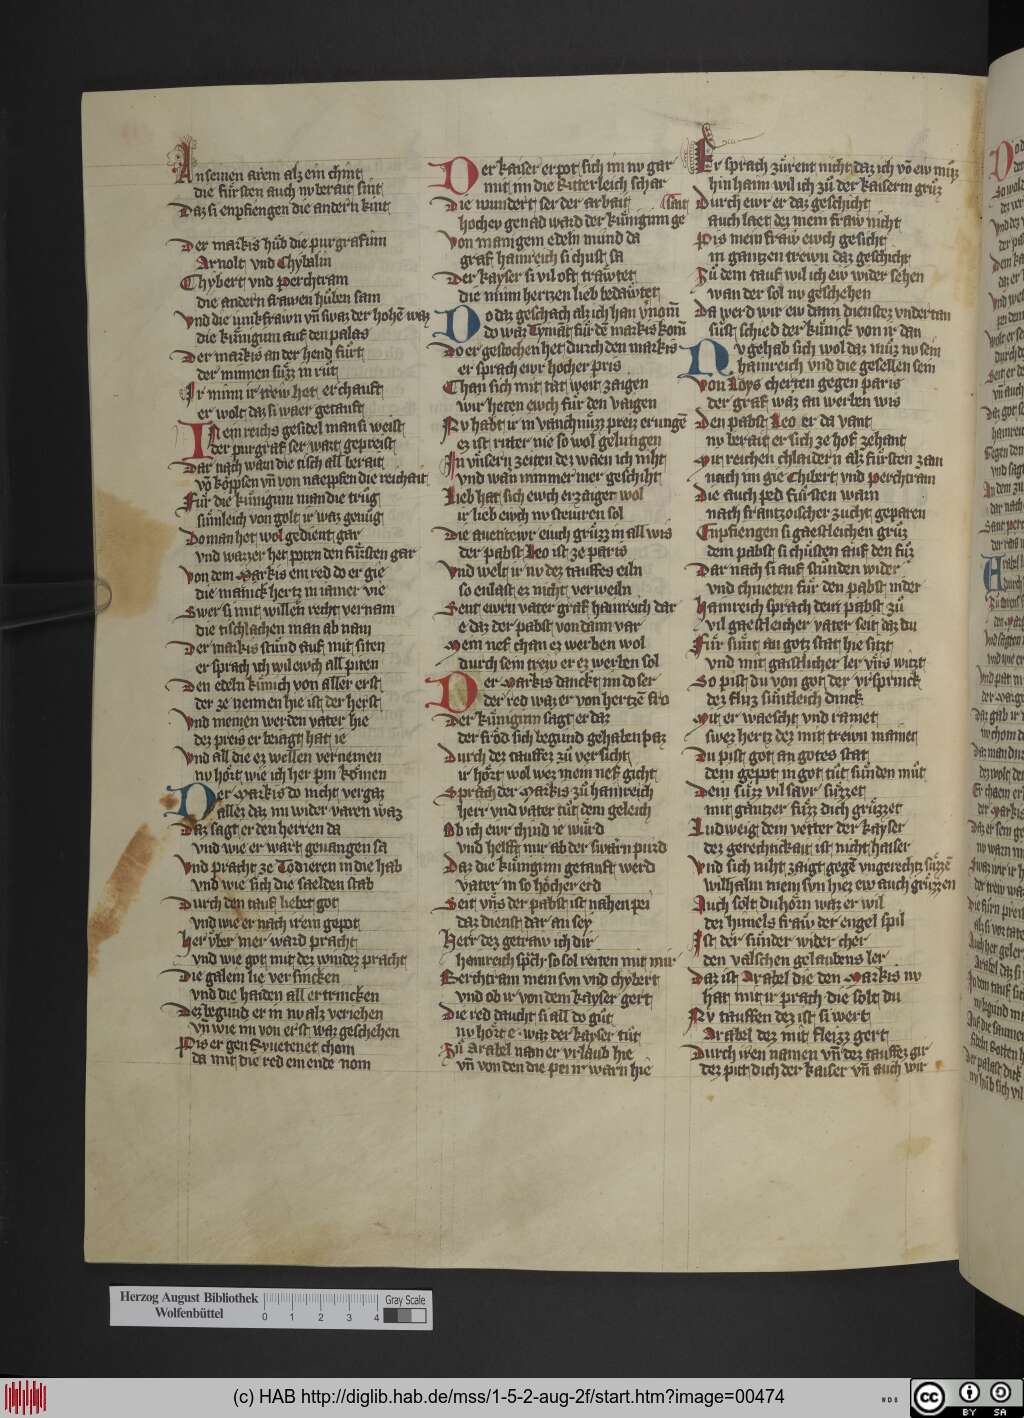 An seinen arem alz ein chint
die fürsten auch nu berait sint
Daz si enpfiengen die andern kint
Der markis hub die purgrafinn
Arnolt vnd Chybalin
Chybert vnd perchtram
die andern frawen huben sam
Vnd die iunkfrawn vn̄ swaz der hohē waz
die küniginn auf den palas
Der markis an der hend fürt
der minnen süzz in rürt
Ir minn ir trew het er chauft
er wolt daz si waer getauft
In ein reichs gesidel man si weist
der purgraf ser wart gepreist
Dar nach wan die tisch all berait
vō köppfen vn̄ von naepffen die reichait
Für die künginn man die trüg
sümleich von golt ir waz genüg
Do man het wol gedient gar
vnd wazzer het poten den fürsten gar
Von dem Markis ein red do er gie
die manick hertz in iamer vie
Swer si mit willen recht vernam
die tischlachen man ab nam
Der markis stünd auf mit siten
er sprach ich wil ewch all piten
Den edeln künich von aller erst
der ze nennen hie ist der herst
Vnd meinen werden vater hie
dez preis er beiagt hat ie
Vnd all die ez wellen vernemen
nv hört wie ich her pin kömen
Der Markis do nicht vergaz
allez daz im wider varen waz
Daz sagt er den herren da
vnd wie er wart geuangen sa
Vnd pracht ze Todieren in die hab
vnd wie sich die saelden stab
Durch den tauf liebet got
vnd wie er nach irem gepot
Her über mer ward pracht
vnd wie got mit dez windez pracht
Die galein lie versincken
vnd die haiden all ertrincken
Dez begund er in nv alz veriehen
vn̄ wie im von erst waz geschehen
Pis er gen Sytetenet chom
da mit die red ein ende nom
Der kaiser erpot sich im nv gar
mit im die Ritterleich schar
Die wundert ser der arbait
hochev genad wart der künginn ge sait
Von manigem edeln mund da
graf hainreich si chust sa
Der kayser si vil oft trawtet
die minn hertzen lieb bedawtet
Do daz geschach alz ich han v̄nom̄
do waz Tymāt für dē markis kom̄
Do er gestochen het durch den markis
er sprach ewr hocher pris
Chan sich mit tat weit zaigen
wir heten ewch für den vaigen
Nv habt ir in vanchnüzz preiz erungē
ez ist ritter nie so wol gelungen
In vnsern zeiten dez waen ich niht
vnd wan nimmer mer geschiht
Lieb hat sich ewch erzaiget wol
ir lieb ewch nv stewren sol
Die auentewr ewch grüzz in all wis
der pabst Leo ist ze paris
Vnd welt ir nv dez tauffes eiln
so enlast ez nicht verweiln
Seit ewrn vater graf hainreich dar
e daz der pabst von dann var
Mein nef chan ez werben wol
durch sein trew er ez werben sol
Der Markis danckt im do ser
der red waz er von hertzē fro
Der künginn sagt er daz
der fröd sich begund gehaben paz
Durch dez tauffez zü versicht
ir hört wol wez mein nef gicht
Sprach der Markis zü hainreich
herr vnd vater tüt dem geleich
Ob ich ewr chind ie würd
vnd helfft mir ab der swarn pürd
Daz die künginn getauft werd
vater in so höcher erd
Seit vns der pabst ist nahen pei
daz dienst dar an sey
Herr dez getraw ich dir
hainreich sprāch so sol reiten mit mir
Berchtram mein sun vnd chybert
vnd ob ir von dem kayser gert
Die red daucht si all do güt
nv hört e waz der kayser tüt
Zü Arabel nam er vrlaub hie
vn̄ von den die pei ir warn hie
Er sprach zürent nicht daz ich vō ew müz
hin haim wil ich zü der kaiserin grüz
Durch ewr er daz geschicht
auch laet dez mein fraw nicht
Pis mein fraw ewch gesicht
in gantzen trewn daz geschicht
Zü dem tauf wil ich ew wider sehen
wan der sol nv geschehen
Da werd wir ew dann dienstez vndertan
süst schied der künick von ir dan
Nv gehab sich wol daz müz nv sein
hainreich vnd die gesellen sein
Von Loys cherten gegen paris
der graf waz an werben wis
Den pabst Leo er da vant
nv berait er sich ze hof zehant
Mit reichen chlaidern alz fürsten zam
nach im gie Chibert vnd perchtram
Die auch ped fürsten warn
nach frantzoischer zucht geparen
Enpfiengen si gaestleichen grüz
dem pabst si chüsten auf den füz
Dar nach si auf stünden wider
vnd chnieten für den pabst nider
Hainreich sprach dem pabst zü
vil gaestleicher vater seit daz du
Für sünt an gotz stat hie sitzt
vnd mit gaistlicher ler vns witzt
So pist du von got der vrsprinck
dez fluz süntleich dinck
Mit er waescht vnd ramet
swez hertz dez mit trewn mamet
Du pist got an gotes stat
dem gepot in got tüt sünden müt
Dem süzz vil savr süzzet
mit gantzer füzz dich grüzzet
Ludweig dein vetter der kayser
dez gerechtickait ist nicht haiser
Vnd sich niht zaigt gegē vngerechtz süzzē
wilhalm mein sun hiez ew auch grüzzen
Auch solt du horn waz er wil
der himels fraw der engel spil
Ist der sünder wider cher
den valschen gelaubens ler
Daz ist Arabel die den Markis nv
hat mit ir prach die solt du
Nv tauffen dez ist si wert
Arabel dez mit fleizz gert
Durch iren namen vn̄ dez tauffez gir
dez pitt dich der kaiser vn̄ auch wir
Herzog August Bibliothek
Wolfenbüttel
0 1 2 3 4
Gray Scale
(c) HAB http://diglib.hab.de/mss/1-5-2-aug-2f/start.htm?image=00474
WDB
CC BY SA